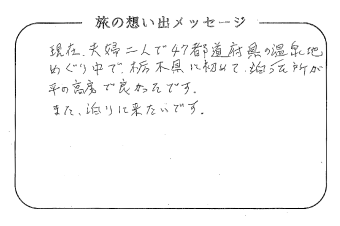 旅の想い出メッセージ
現在、夫婦二人で47都道府県の温泉地
めぐり中で、栃木県に初めて、泊る所が
平の高房で良かったです。
また、泊りに来たいです。